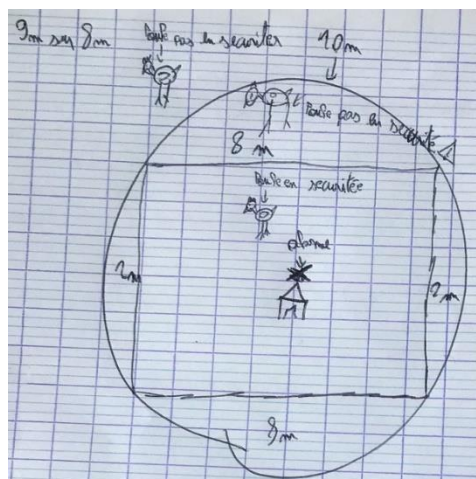 9m sur 8m
Poule pas en securiter
10m
Poule pas en securité
8 m
Poule en securitée
alarme
8m